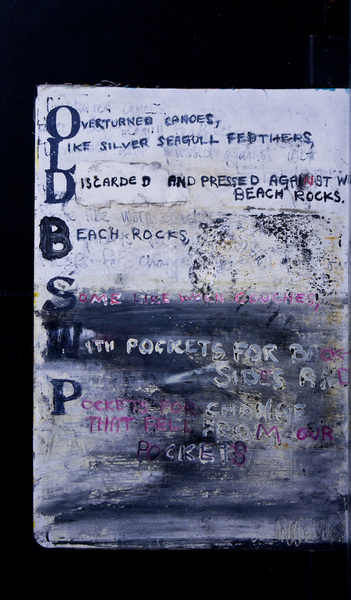 OVERTURNED CANOES,
LIKE SILVER SEAGULL FEATHERS,
DISCARDED AND PRESSED AGAINST W
BEACH ROCKS.
BEACH ROCKS
SOME LIKE WORN COUCHES,
WITH POCKETS FOR BACK
SIDES AND
POCKETS FOR CHANGE
THAT FELL FROM OUR
POCKETS